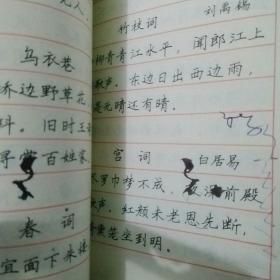 无人
乌衣巷
乔边野草花
斗。旧时王
寻常百姓家
春 词
宜面下朱楼
竹枝词 刘禹锡
柳青青江水平，闻郎江上
歌声。东边日出西边雨，
是无晴还有晴。
宫 词 白居易
罗巾梦不成，夜深前殿
歌声。红颜未老恩先断，
熏笼坐到明。